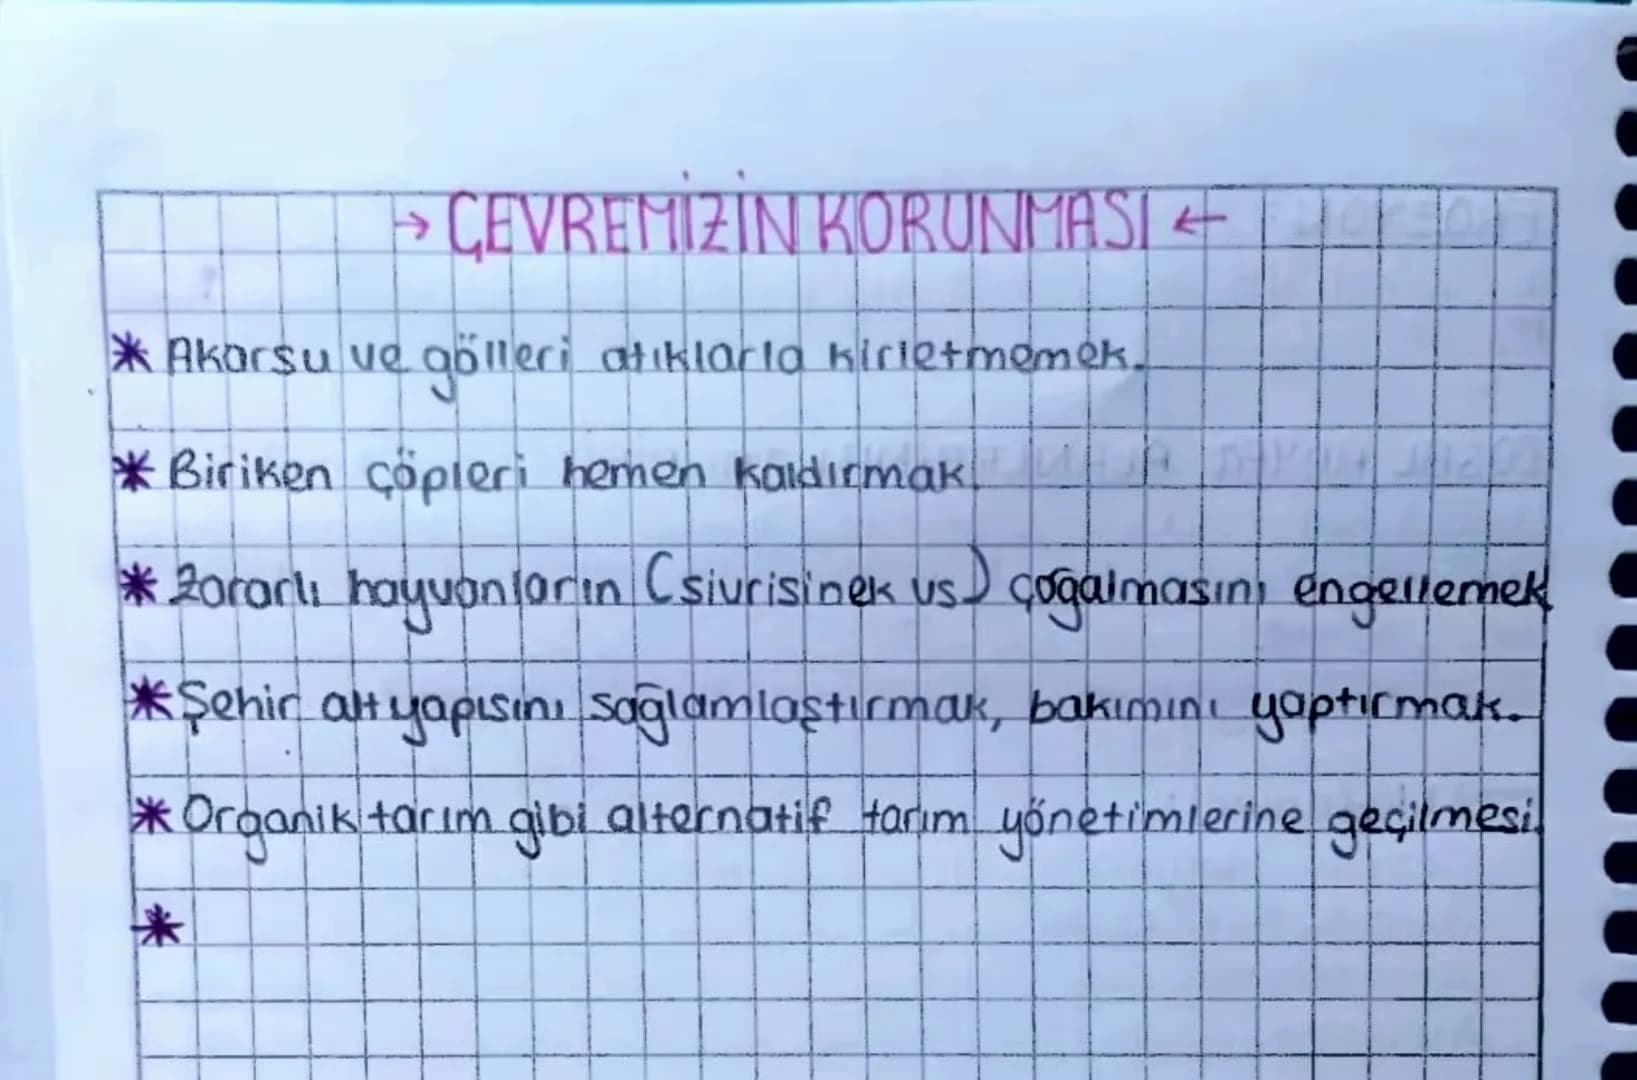 → ÇEVREMİZİN KORUNMASI ←
* Akarsu ve gölleri atıklarla kirletmemek.
* Biriken çöpleri hemen kaldırmak.
* Zararlı hayvanların (sivrisinek vs) çoğalmasını engellemek
* Şehir altyapısını sağlamlaştırmak, bakımını yaptırmak.
* Organik tarım gibi alternatif tarım yönetimlerine geçilmesi.
*